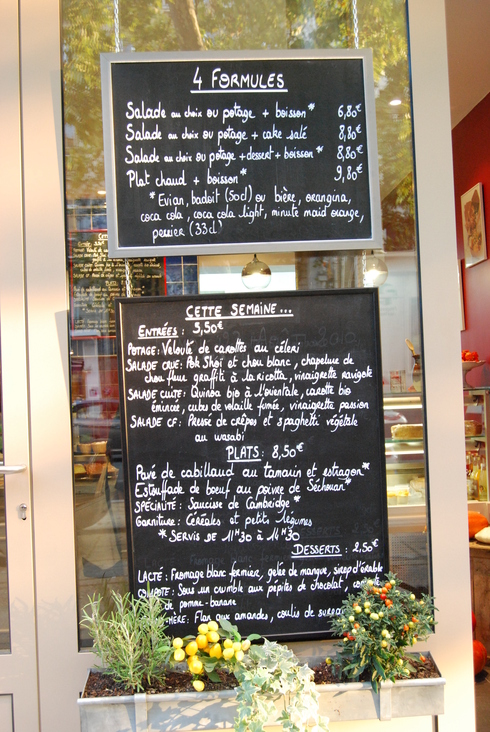 4 FORMULES
Salade au choix ou potage + boisson* 6,80€
Salade au choix ou potage + cake salé 8,80€
Salade au choix ou potage + dessert + boisson* 8,80€
Plat chaud + boisson* 9,80€
*Evian, badoit (50cl) ou bière, orangina,
coca cola, coca cola light, minute maid orange,
perrier (33cl)
CETTE SEMAINE...
ENTRÉES : 5,50€
POTAGE : Velouté de carottes au céleri
SALADE CRUE : Pak Shoï et chou blanc, chapelure de
chou fleur graffiti à la ricotta, vinaigrette ravigote
SALADE CUITE : Quinoa bio à l'orientale, carotte bio
émincée, cubes de volaille fumée, vinaigrette passion
SALADE CF : Presse de crêpes et spaghetti végétale
au wasabi
PLATS : 8,50€
Pavé de cabillaud au tamarin et estragon*
Estouffade de bœuf au poivre de Séchouan*
SPÉCIALITÉ : Saucisse de Cambridge*
Garniture : Céréales et petits légumes
*SERVIS DE 11H30 à 14H30
DESSERTS : 2,50€
LACTÉ : Fromage blanc fermier, gelée de mangue, sirop d'érable
COMPOTE : Sous un crumble aux pépites de chocolat,
de pomme-banane
Flan aux amandes, coulis de